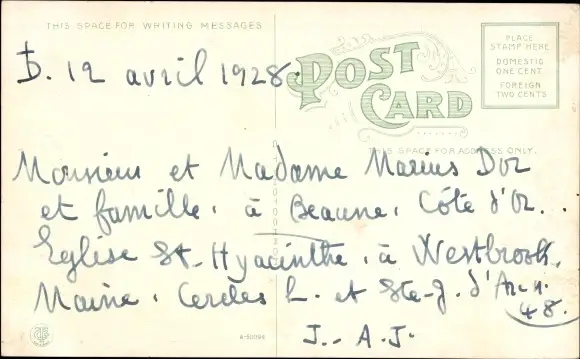 THIS SPACE FOR WRITING MESSAGES
POST CARD
PLACE
STAMP HERE
DOMESTIC
ONE CENT
FOREIGN
TWO CENTS
THIS SPACE FOR ADDRESS ONLY.
D. 12 avril 1928.
Monsieur et Madame Marius Dor
et famille, à Beaune, Côte d'Or...
Eglise St-Hyacinthe, à Westbrook,
Maine, Cercles L. et Ste-J. d'Arc
48.
J.-A.J.
A-50094